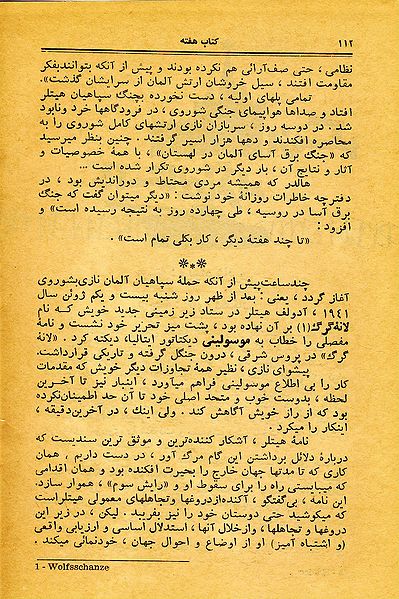 ۱۱۲ کتاب هفته
نظامی ، حتی صف‌آرائی هم نکرده بودند و پیش از آنکه بتوانندبفکر
مقاومت افتند ، سیل خروشان ارتش آلمان از سرایشان گذشت».
تمامی پلهای اولیه ، دست نخورده بچنگ سپاهیان هیتلر
افتاد و صدها هواپیمای جنگی شوروی ، در فرودگاهها خرد ونابود
شد . در دوسه روز ، سربازان نازی ارتشهای کامل شوروی را به
محاصره افکندند و دهها هزار اسیر گرفتند . چنین بنظر میرسید
که «جنگ برق آسای آلمان در لهستان» ، با همهٔ خصوصیات و
آثار و نتایج آن ، بار دیگر در شوروی تکرار شده است ...
هالدر که همیشه مردی محتاط و دوراندیش بود ، در
دفترچه خاطرات روزانهٔ خود نوشت : «دیگر میتوان گفت که جنگ
برق آسا در روسیه ، طی چهارده روز به نتیجه رسیده است» و
افزود :
«تا چند هفتهٔ دیگر ، کار بکلی تمام است» .
***
چندساعت‌پیش از آنکه حملهٔ سپاهیان آلمان نازی‌بشوروی
آغاز گردد ، یعنی : بعد از ظهر روز شنبه بیست و یکم ژوئن سال
۱۹۴۱ ، آدولف هیتلر در ستاد زیر زمینی جدید خویش کـه نام
لانهٔ گرگ(۱) بر آن نهاده بود ، پشت میز تحریر خود نشست و نامهٔ
مفصلی را خطاب به موسولینی دیکتاتور ایتالیا، دیکته کرد . «لانهٔ
گرگ» در پروس شرقی ، درون جنگل گرفته و تاریکی قرارداشت.
پیشوای نازی ، نظیر همهٔ تجاوزات دیگر خویش که مقدمات
کار را بی اطلاع موسولینی فراهم میآورد ، اینبار نیز تا آخـرین
لحظه ، بدوست خوب و متحد اصلی خود تا آن حد اطمینان‌نکرده
بود که از راز خویش آگاهش کند . ولی اینك ، در آخرین‌دقیقه ،
اینکار را میکرد .
نامهٔ هیتلر ، آشکار کننده‌ترین و موثق ترین سندیست که
دربارهٔ دلائل برداشتن این گام مرگ آور ، در دست داریم . همان
کاری که تا مدتها جهان خارج را بحیرت افکنده بود و همان اقدامی
که میبایستی راه را برای سقوط او و «رایش سوم» ، هموار سازد.
این نامهٔ ، بی‌گفتگو ، آکنده‌ازدروغها وتجاهلهای معمولی هیتلراست
که میکوشید حتی دوستان خود را نیز بفریبد . لیکن ، در زیر این
دروغها و تجاهلها ، وازخلال آنها ، استدلال اساسی و ارزیابی واقعی
(و اشتباه آمیز) او از اوضاع و احوال جهان ، خودنمائی میکند .
1 - Wolfsschanze